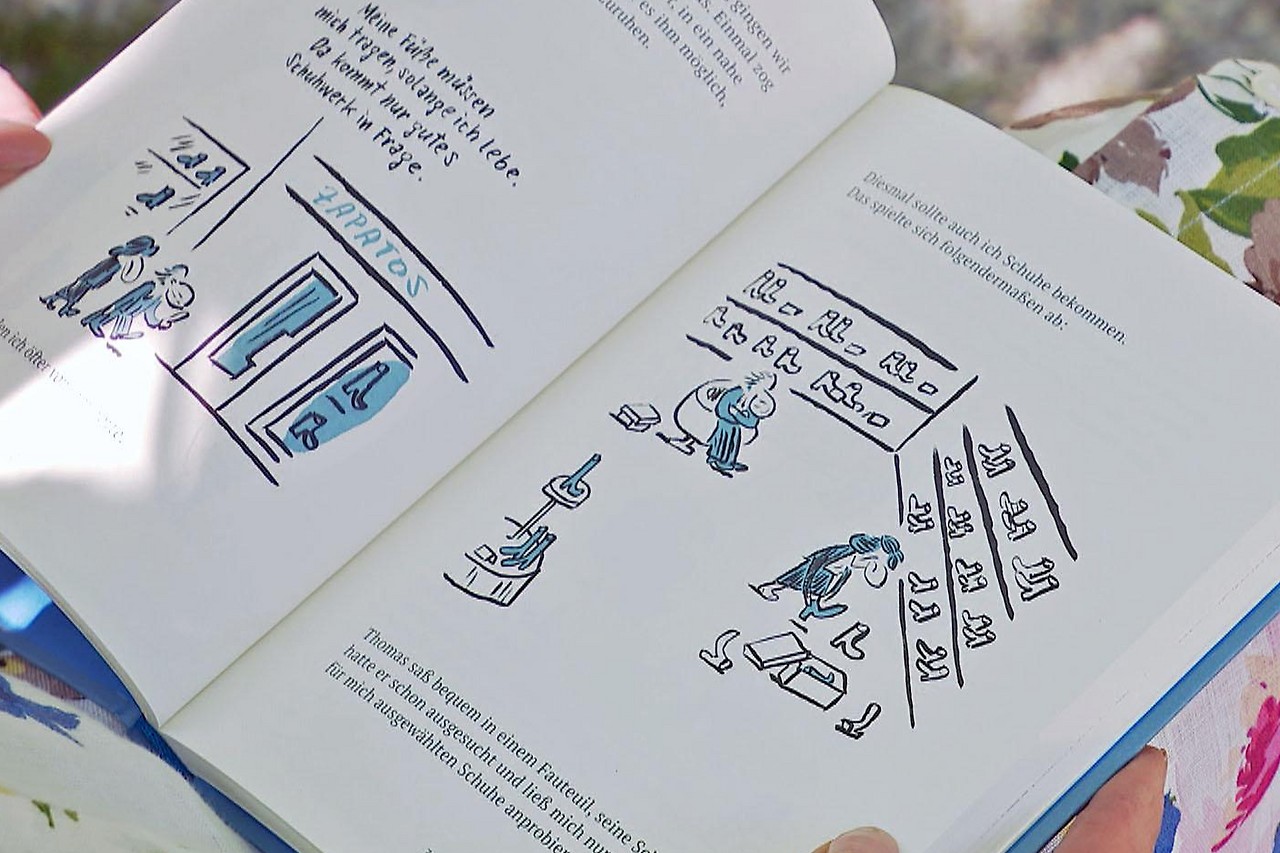 gingen wir
s. Einmal zog
, in ein nahe
es ihm möglich,
zuruhen.
Meine Füße müssen
mich tragen, solange ich lebe.
Da kommt nur gutes
Schuhwerk in Frage.
ZAPATOS
ich öfter
Diesmal sollte auch ich Schuhe bekommen.
Das spielte sich folgendermaßen ab:
Thomas saß bequem in einem Fauteuil, seine
hatte er schon ausgesucht und ließ mich nur
für mich ausgewählten Schuhe anprobier